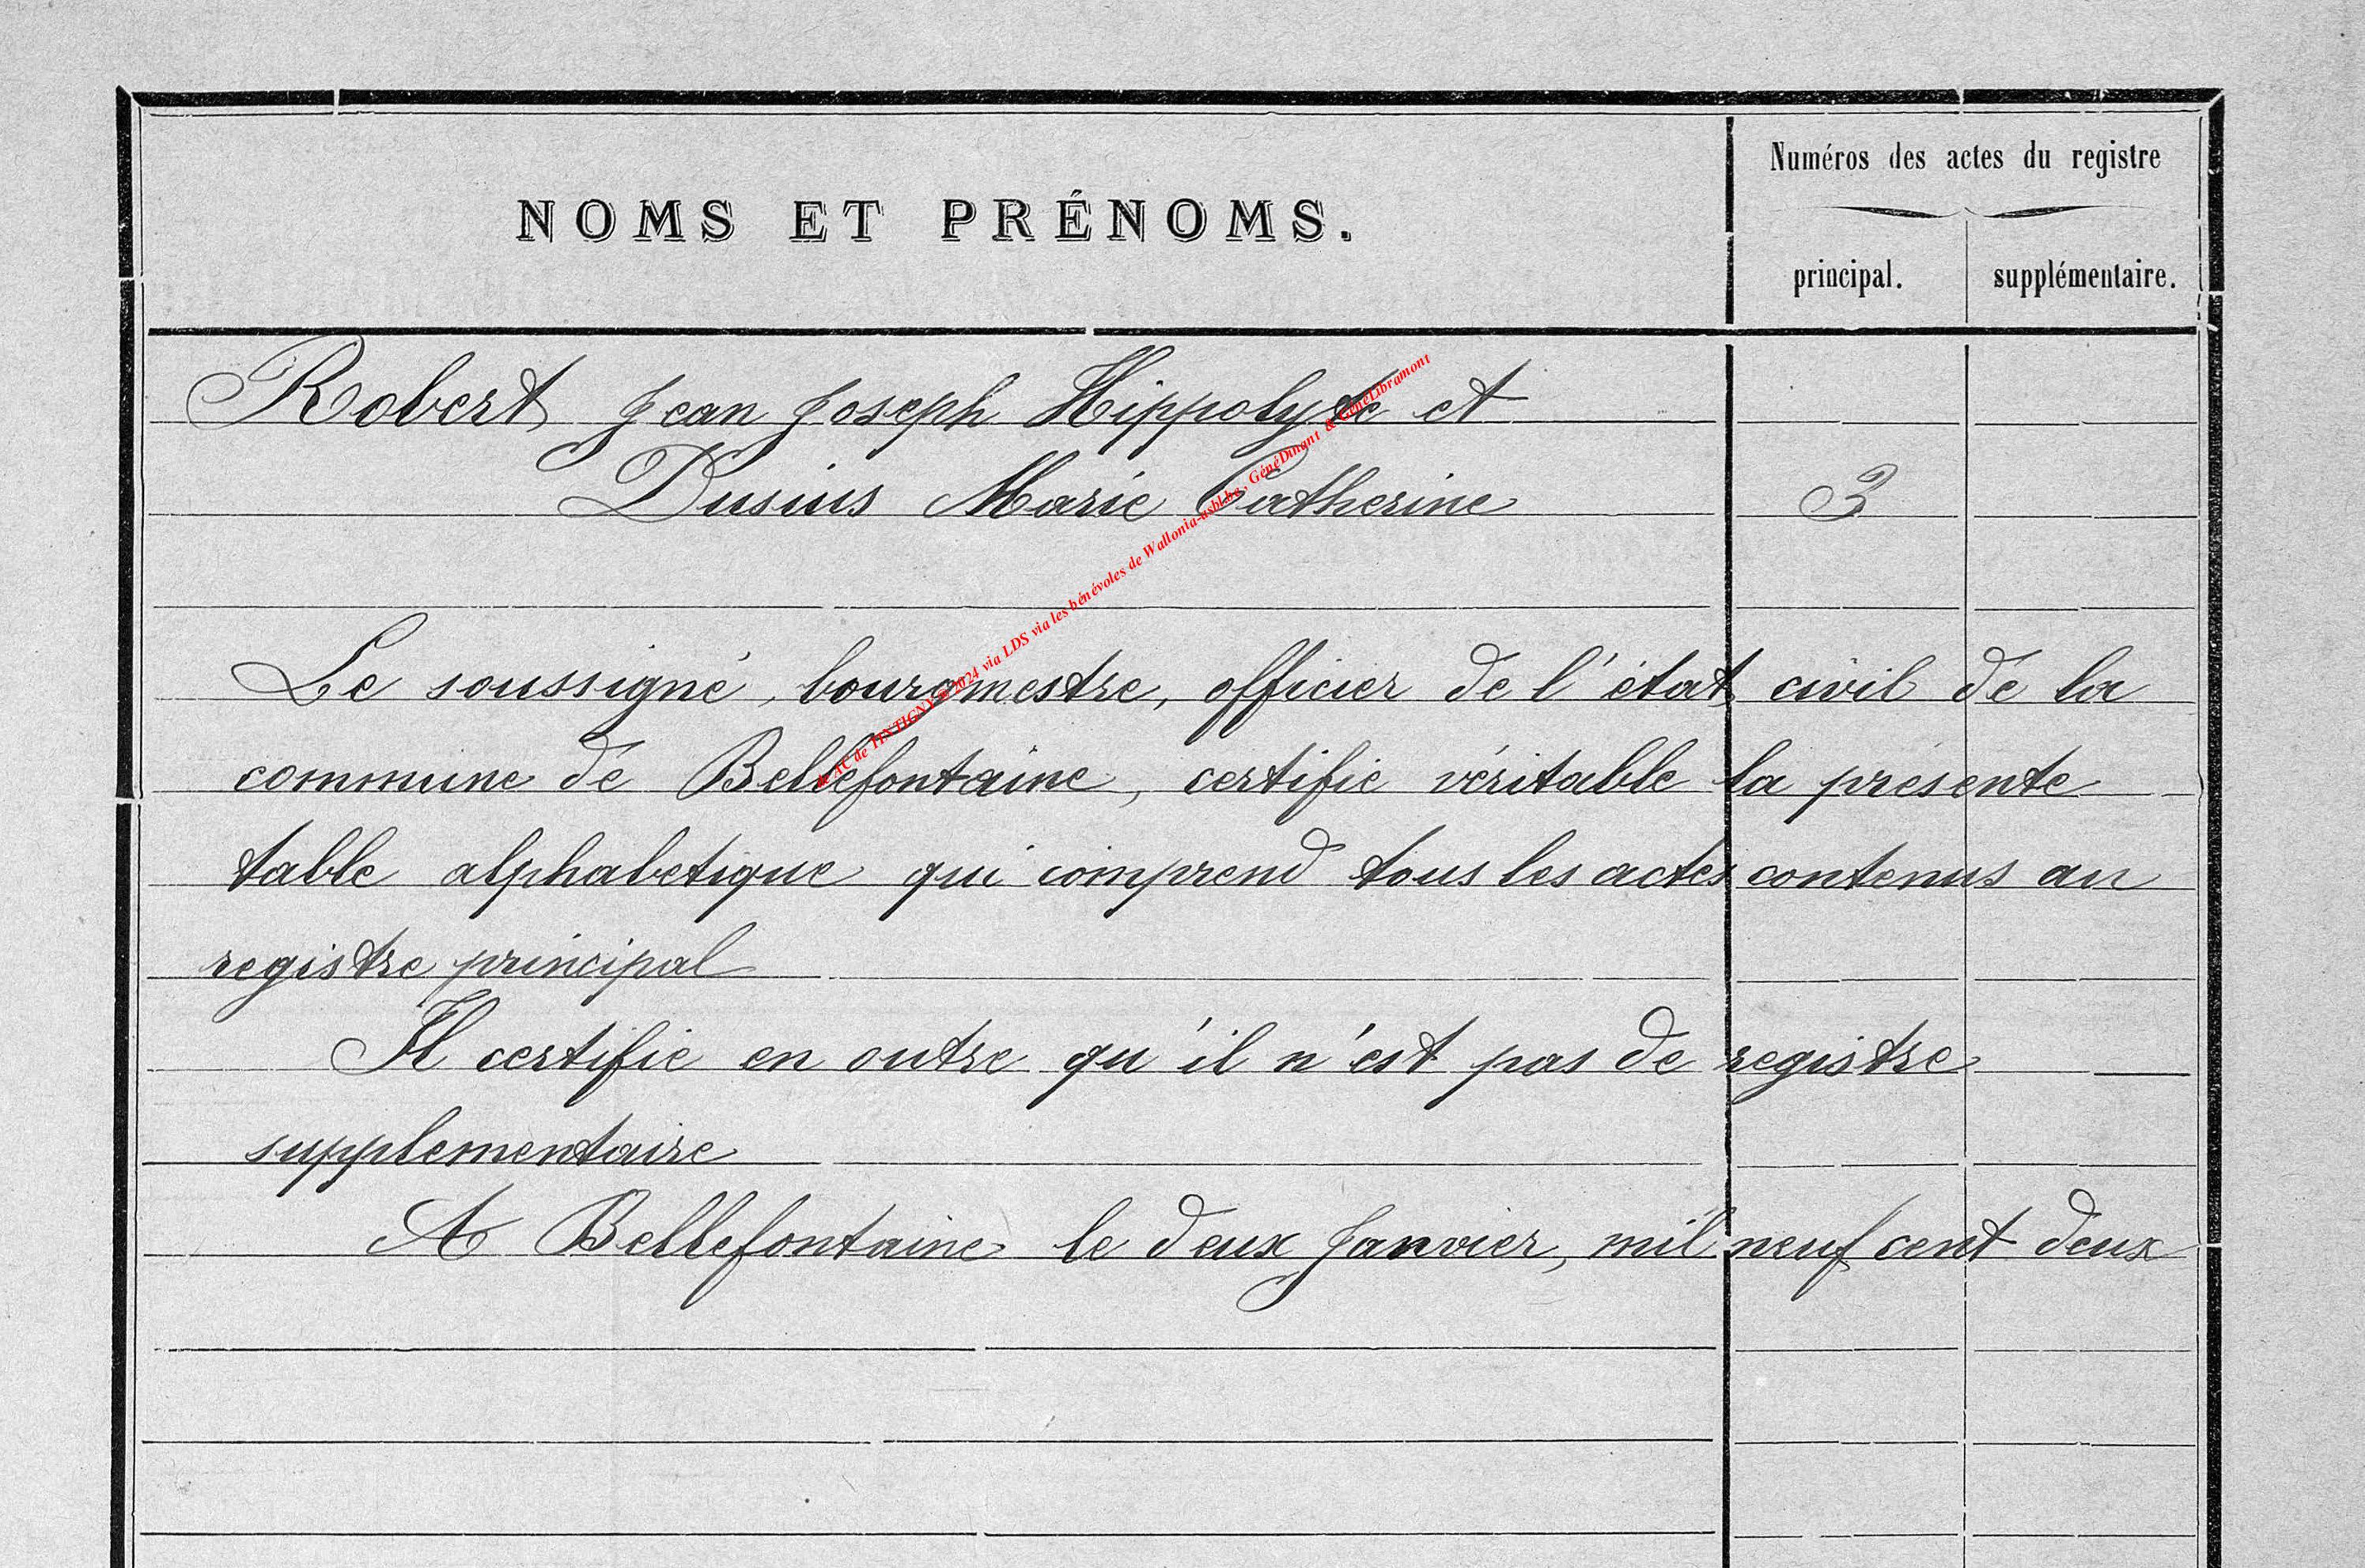 Numéros des actes du registre
NOMS ET PRÉNOMS.
principal. supplémentaire.
Robert Jean Joseph Hippolyte et
Dusius Marie Catherine 3
Le soussigné, bourgmestre, officier de l'état civil de la
commune de Bellefontaine, certifie véritable la présente
table alphabetique qui comprend tous les actes contenus au
registre principal
Il certifie en outre qu'il n'est pas de registre
supplementaire
A Bellefontaine le deux Janvier, mil neuf cent deux
AC de TINTIGNY © 2024 via LDS via les bénévoles de Wallonia-asbl.be, GénéDinant & GénéLibramont